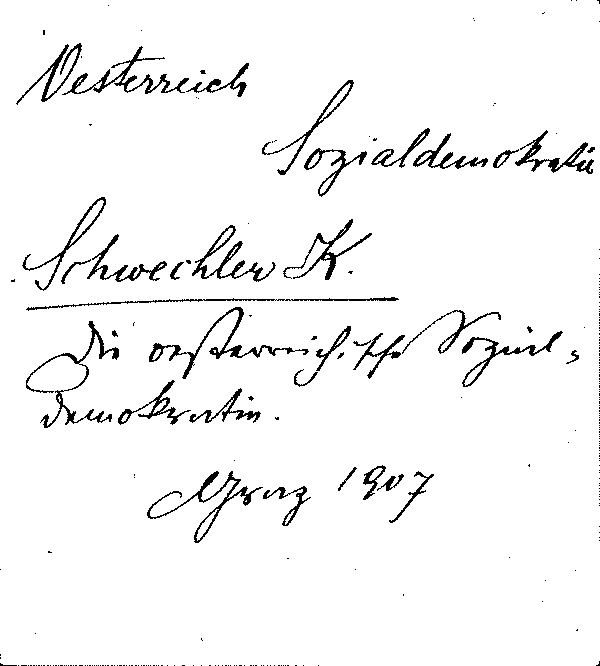 Oesterreich
Sozialdemokratie
Schwechler K.
Die oesterreichische Sozial-
demokratie.
Graz 1907